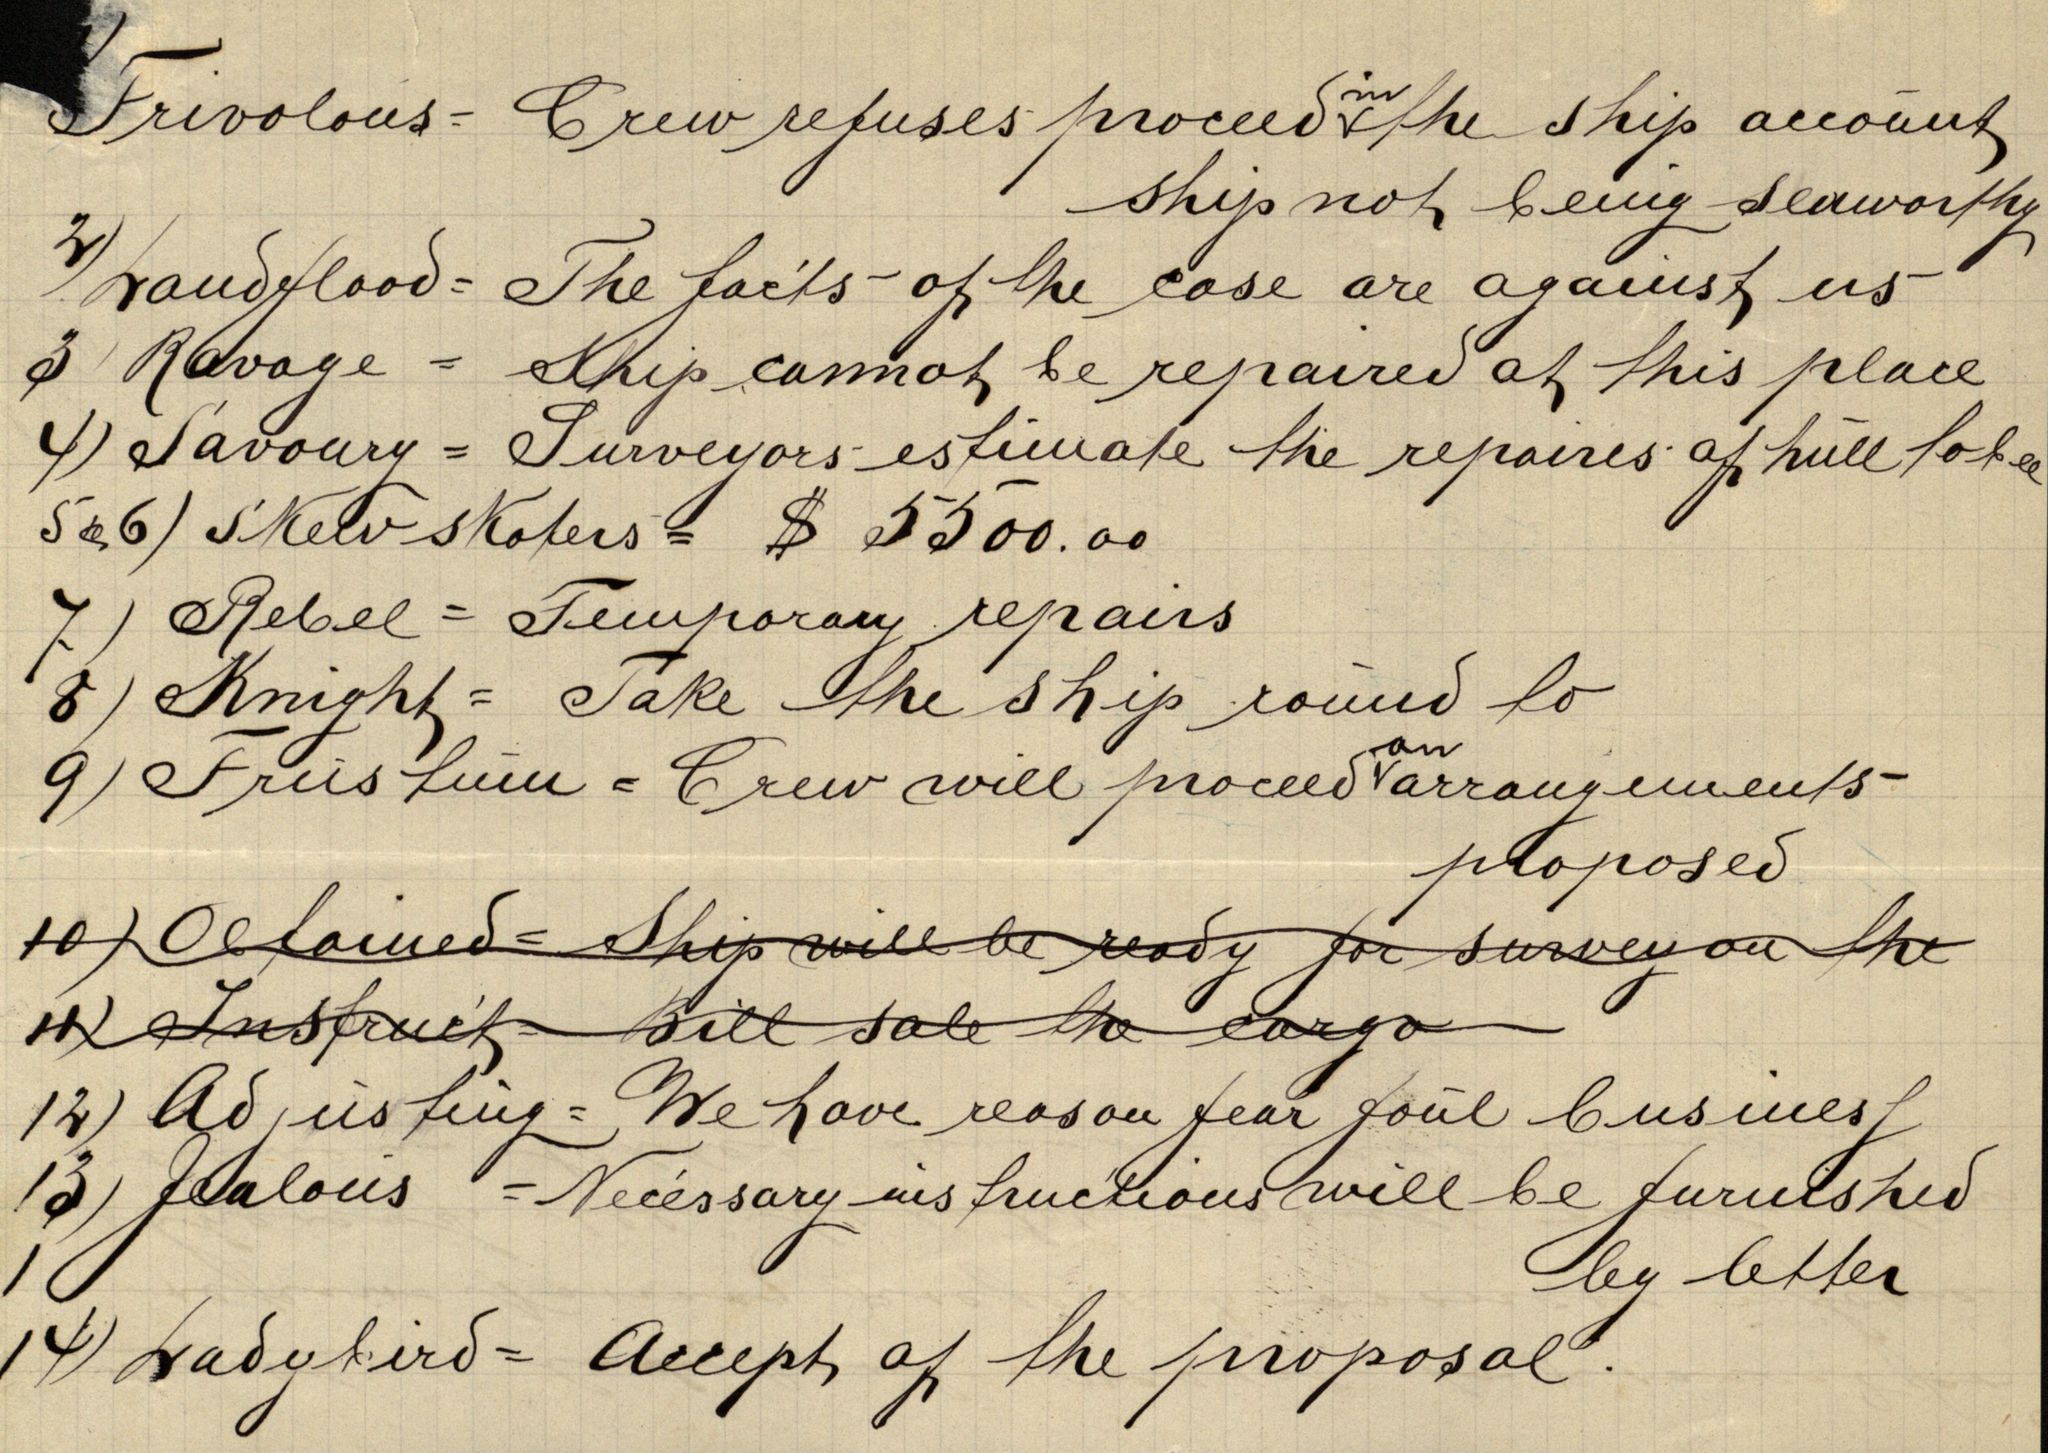 Frivolous = Crew refuses proceed in the ship account
ship not being seaworthy
2) Landflood = The facts of the case are against us
3 Ravage = Ship cannot be repaired at this place
4) Savoury = Surveyors estimate the repaires of hull to bee
5 & 6) Skew skaters = $ 5500.00
7) Rebel = Temporary repairs
8) Knight = Take the ship round to
9) Frustum = Crew will proceed on arrangements
proposed
10) Obtained = Ship will be ready for survey on the
11) Instruct = Bill sale the cargo
12) Adjusting = We have reason fear foul business
13) Jealous = Necessary instructions will be furnished
1 by letter
14) Ladybird = Accept of the proposal.